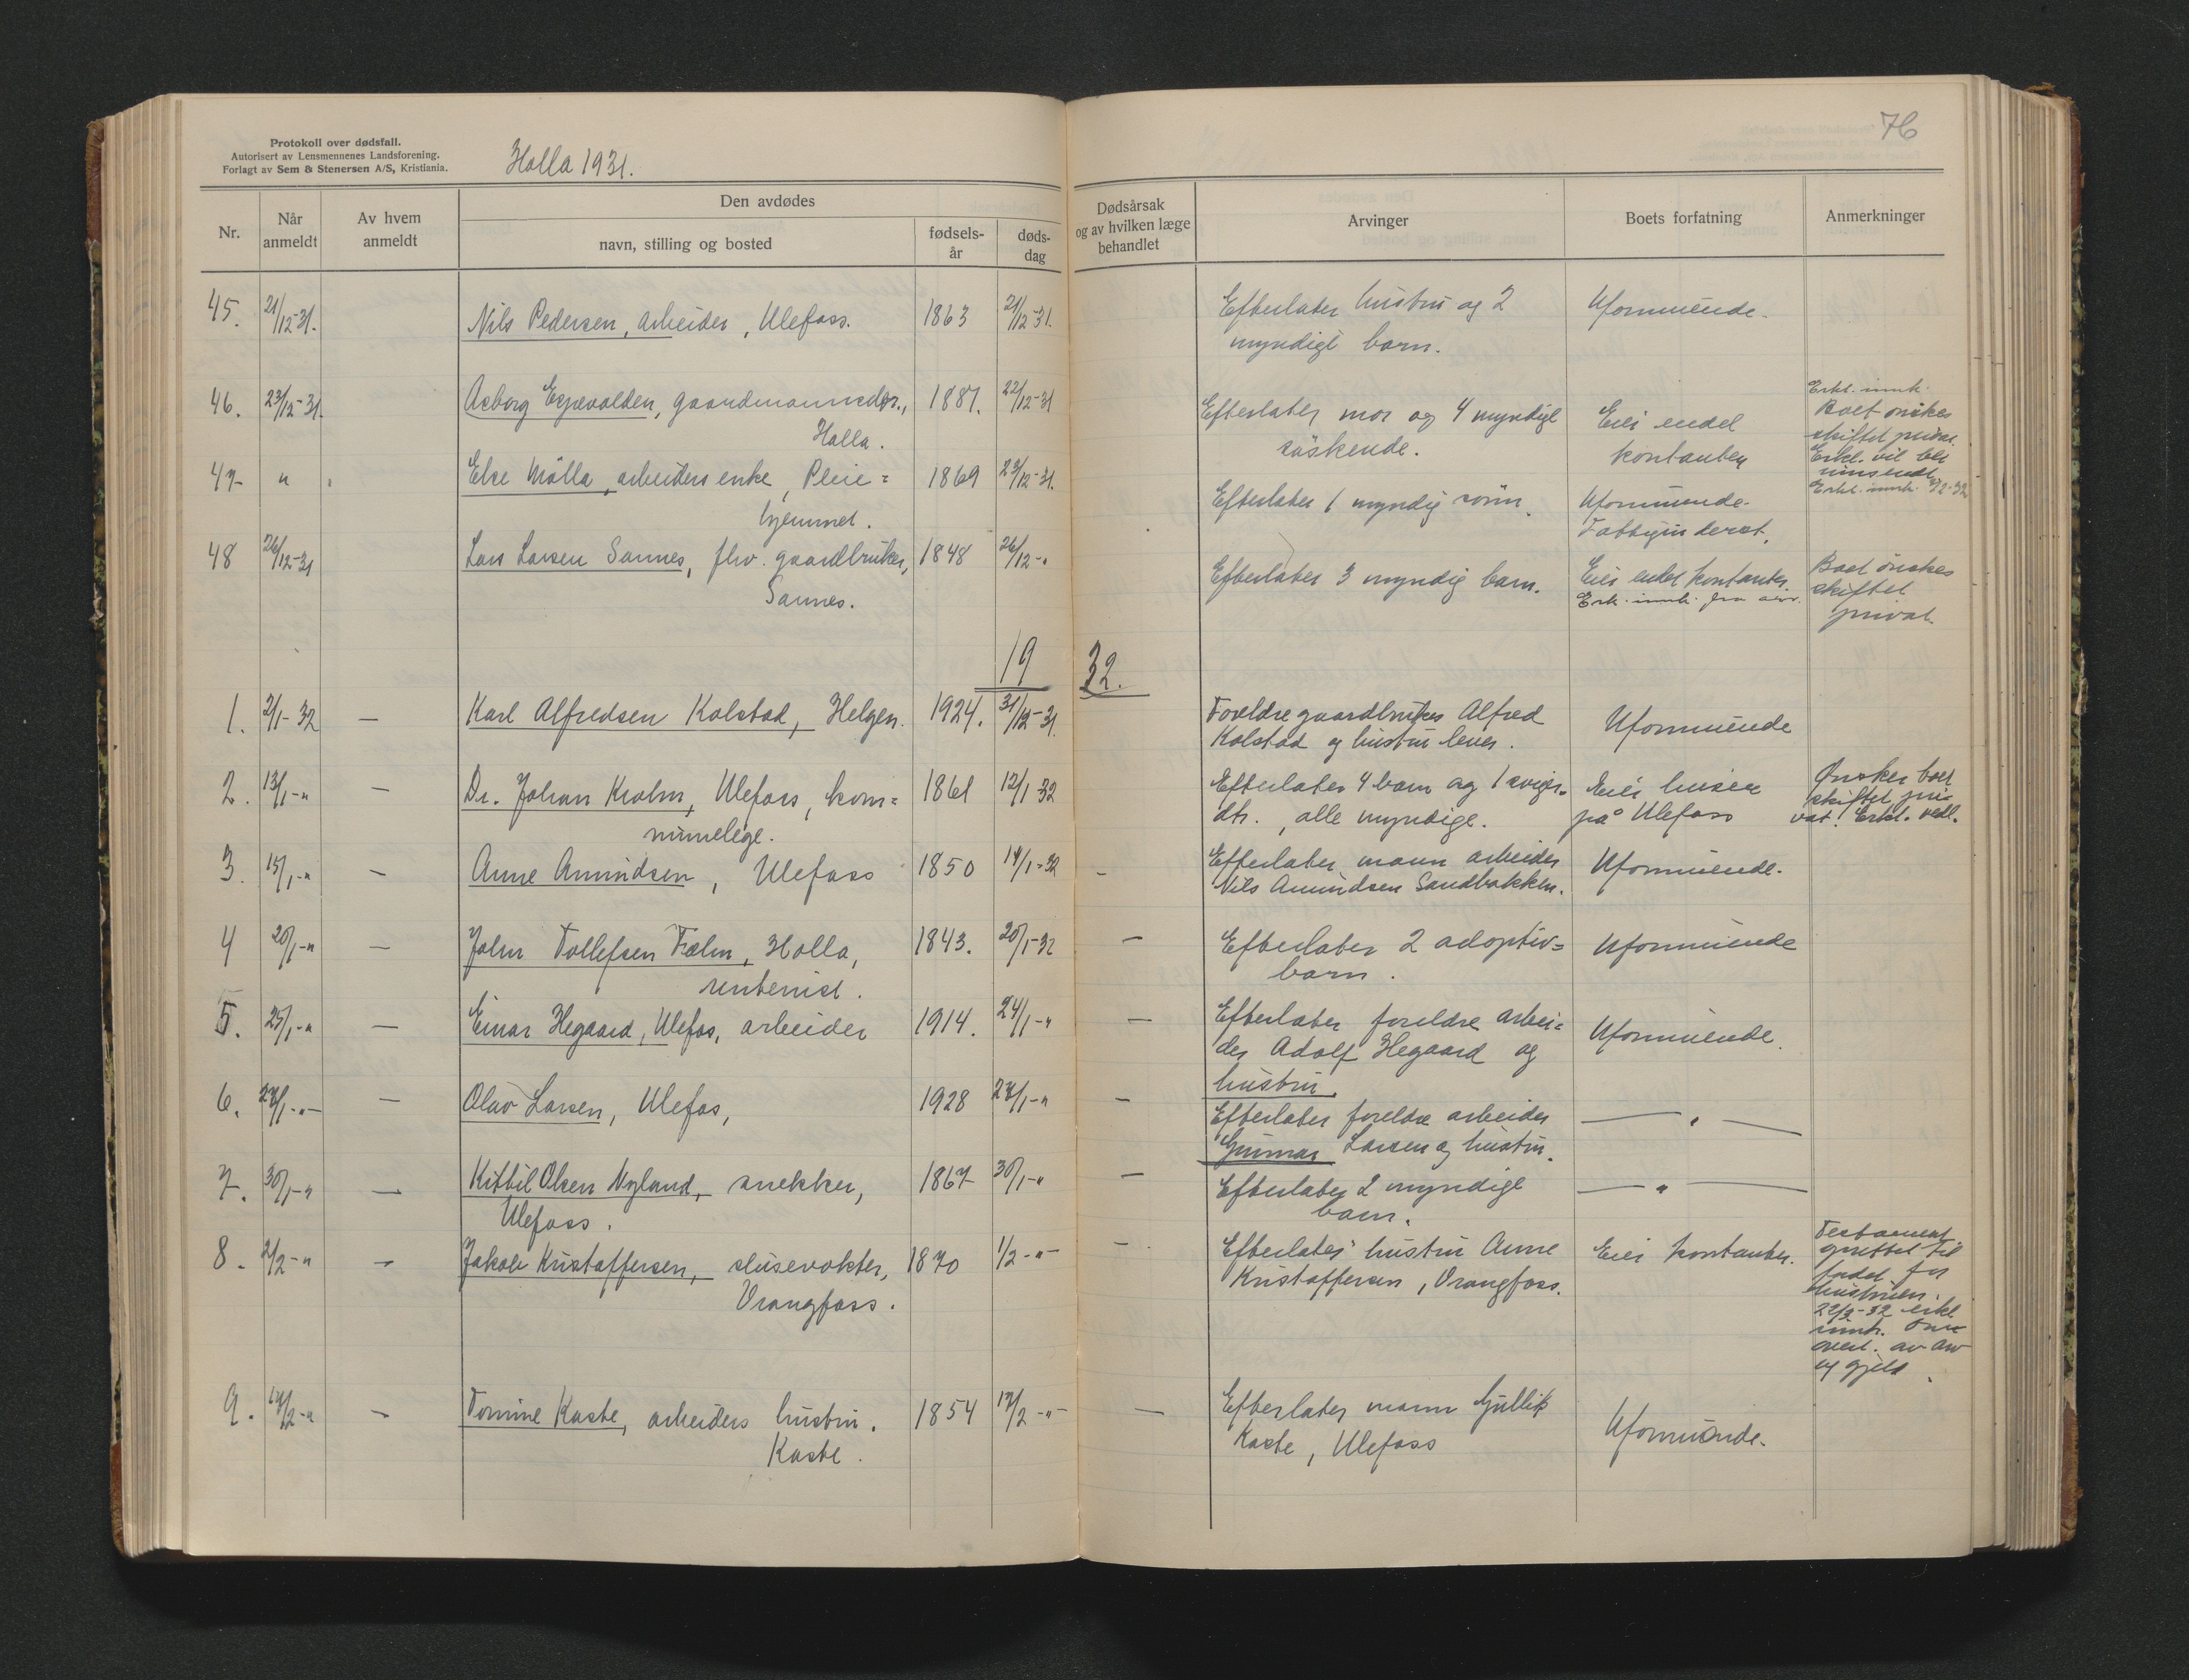 Protokoll over dødsfall.
Autorisert av Lensmennenes Landsforening.
Forlagt av Sem & Stenersen A/S, Kristiania.
Holla 1931.
76
Nr.
Når anmeldt
Av hvem anmeldt
Den avdødes
navn, stilling og bosted
fødsels-år
døds-dag
Dødsårsak og av hvilken læge behandlet
Arvinger
Boets forfatning
Anmerkninger
45. 21/12-31. Nils Pedersen, arbeider, Ulefoss. 1863 21/12-31. Efterlater hustru og 2 Uformuende.
myndige barn.
46. 23/12-31. Aasborg gaardmannsdgr., 1881. 22/12-31 Efterlater mor og 4 myndige Eier endel Erkl. innk. Boet ønskes
Holla. søskende. kontanter skiftet privat.
Erkl. vil bli
innsendt
47 " Else Mølla, arbeiders enke, Pleie= 1869 23/12-31. Efterlater 1 myndig sønn. Uformuende. Erkl. innk.
hjemmet. Fattigunderst.
48 26/12-31 Lars Larsen Sannes, fhv. gaardbruker, 1848 26/12-" Efterlater 3 myndig barn. Eier endel kontanter. Boet ønskes
Sannes. Erk. innk. fra skiftet
privat.
1932.
1. 2/1-32 — Karl Alfredsen Kolstad, Helgen. 1924. 31/12-31. Foreldre gaardbruker Alfred Uformuende
Kolstad og hustru lever.
2. 13/1-" — Dr. Johan Krohn, Ulefoss, kom= 1861 12/1-32 Efterlater 4 barn og 1 sviger- Eier huseie Ønskes boet
munelege. dtr., alle myndige. på Ulefoss skiftet pri-
vat. Erkl. vedl.
3. 15/1-" — Anne Amundsen, Ulefoss 1850 14/1-32 - Efterlater mann arbeider Uformuende.
Nils Amundsen Sandbakken.
4 20/1-" — John Tollefsen Holla, 1843. 20/1-32 — Efterlater 2 adoptiv= Uformuende
rentenist. barn.
5. 25/1-" — Einar Hegaard, Ulefos, arbeider 1914. 24/1-" — Efterlater foreldre arbei= Uformuende.
der Adolf Hegaard og
hustru.
6. 28/1-"- — Olav Larsen, Ulefos, 1928 28/1-" — Efterlater foreldre arbeider —"—
Gunnar Larsen og hustru.
7. 30/1-" — Kittil Olsen Nyland, snekker, 1867 30/1-" — Efterlater 2 myndige —"—
Ulefoss. barn.
8. 2/2-" - Jakob Kristoffersen, slusevokter, 1870 1/2-"- -. Efterlater hustru Anne Eier kontanter. Testament
Vrangfoss. Kristoffersen, Vrangfoss. oprettet til
fordel for
hustruen.
22/3-32 erkl.
innk. om
overt. av arv
og gjeld.
9. 17/2-" - Tomine Kaste, arbeiders hustru. 1854 17/2-"- — Efterlater mann Gullik Uformuende.
Kaste. Kaste, Ulefoss